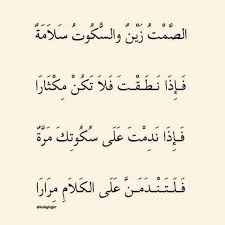 الصَّمْتُ زَيْنٌ والسُّكُوتُ سَلَامَةٌ
فَإِذَا نَطَقْتَ فَلَا تَكُنْ مِكْثَارَا
فَإِذَا نَدِمْتَ عَلَى سُكُوتِكَ مَرَّةً
فَلَتَنْدَمَنَّ عَلَى الكَلَامِ مِرَارَا